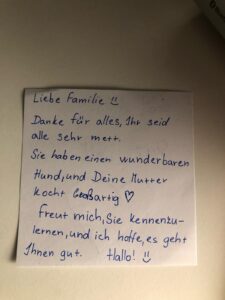 Liebe Familie ü
Danke für alles, Ihr seid
alle sehr mett.
Sie haben einen wunderbaren
Hund, und Deine Mutter
kocht Großartig ♡
Freut mich, Sie kennenzu-
lernen, und ich hoffe, es geht
Ihnen gut. Hallo! ü